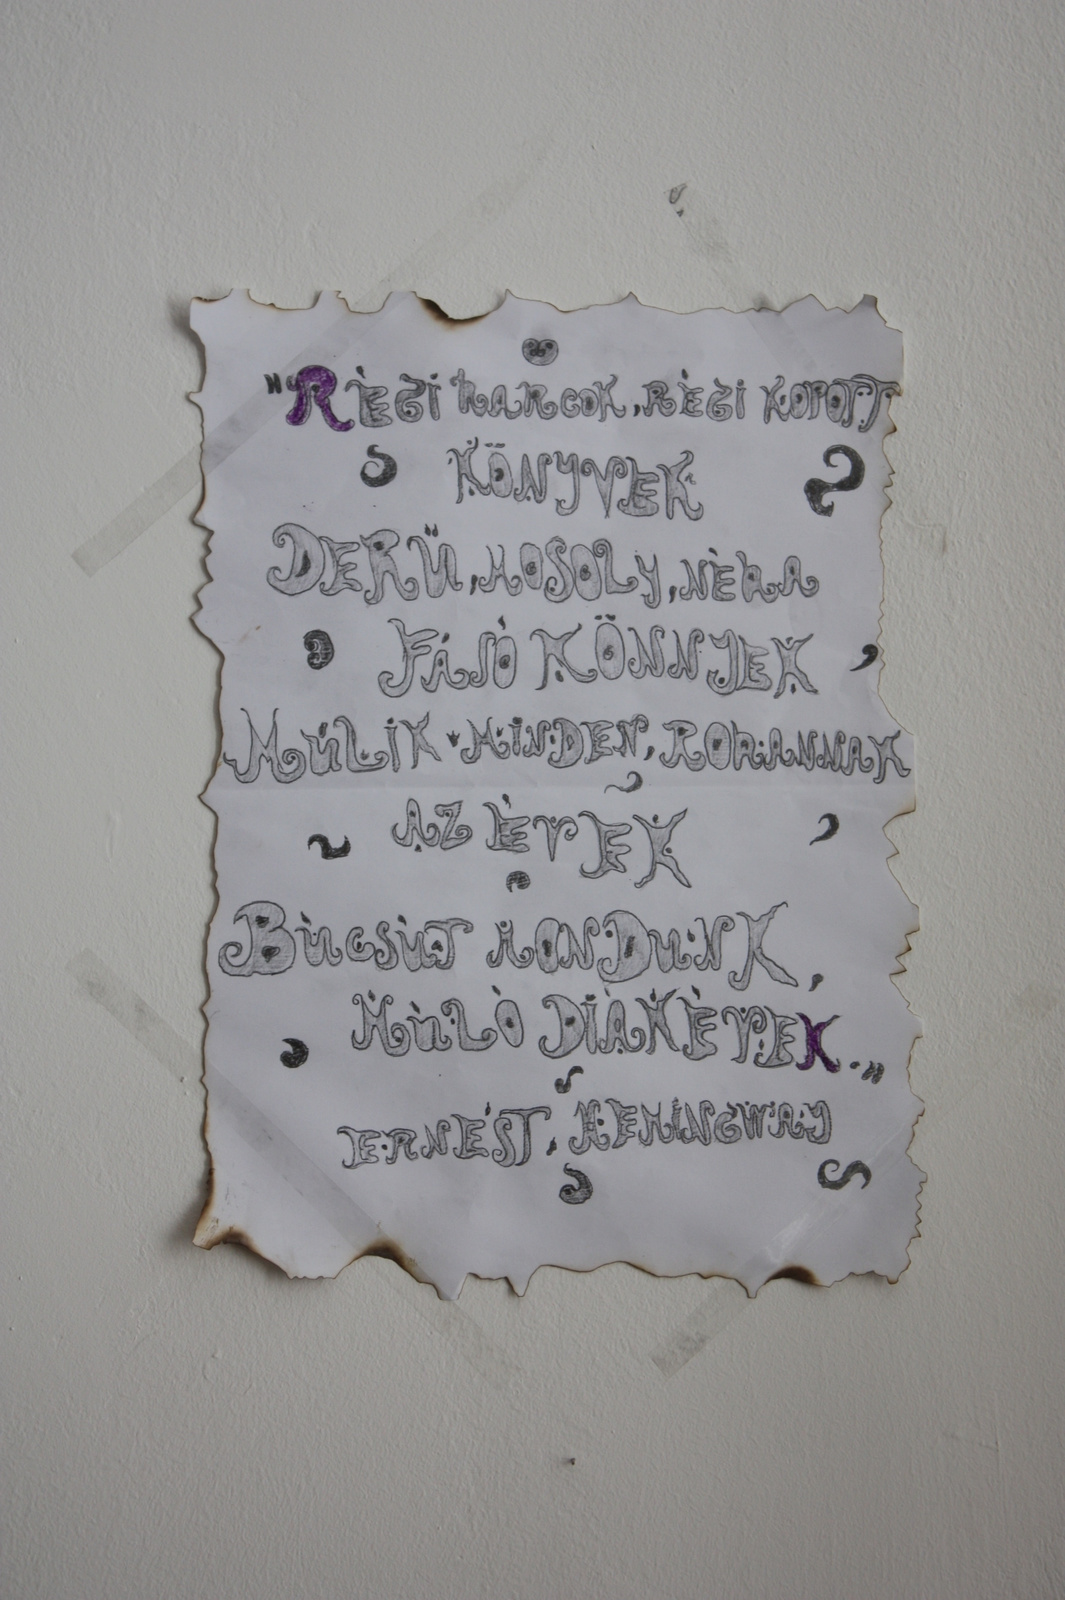 "RÉGI HARCOK, RÉGI KOPOTT
KÖNYVEK
DERŰ, MOSOLY, NÉHA
FÁJÓ KÖNNYEK
MÚLIK MINDEN, ROHANNAK
AZ ÉVEK
BÚCSÚT MONDUNK,
MÚLÓ DIÁKÉVEK."
ERNEST, HEMINGWAY